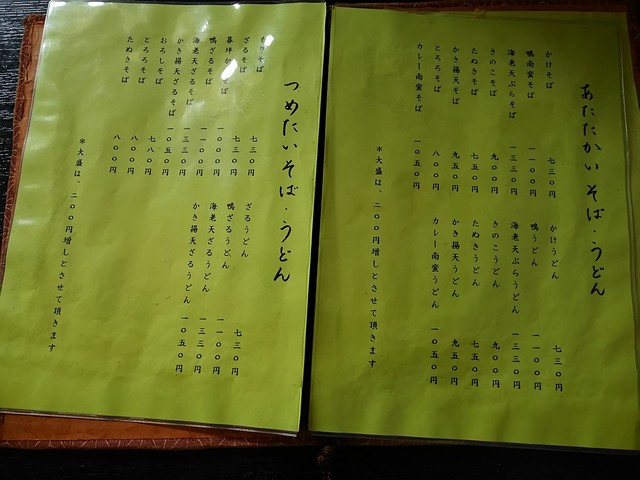 あたたかいそば・うどん
かけそば 七三〇円
鴨南蛮そば 一一〇〇円
海老天ぷらそば 一三三〇円
きのこそば 九〇〇円
たぬきそば 七五〇円
かき揚天そば 九五〇円
とろろそば 八〇〇円
カレー南蛮そば 一〇五〇円
かけうどん 七三〇円
鴨うどん 一一〇〇円
海老天ぷらうどん 一三三〇円
きのこうどん 九〇〇円
たぬきうどん 七五〇円
かき揚天うどん 九五〇円
カレー南蛮うどん 一〇五〇円
＊大盛は、二〇〇円増しとさせて頂きます
つめたいそば・うどん
もりそば 七三〇円
ざるそば 七三〇円
そば 一〇〇〇円
鴨ざるそば 一一〇〇円
海老天ざるそば 一三三〇円
かき揚天ざるそば 一〇五〇円
おろしそば 七八〇円
とろろそば 八〇〇円
たぬきそば 八〇〇円
ざるうどん 七三〇円
鴨ざるうどん 一一〇〇円
海老天ざるうどん 一三三〇円
かき揚天ざるうどん 一〇五〇円
＊大盛は、二〇〇円増しとさせて頂きます